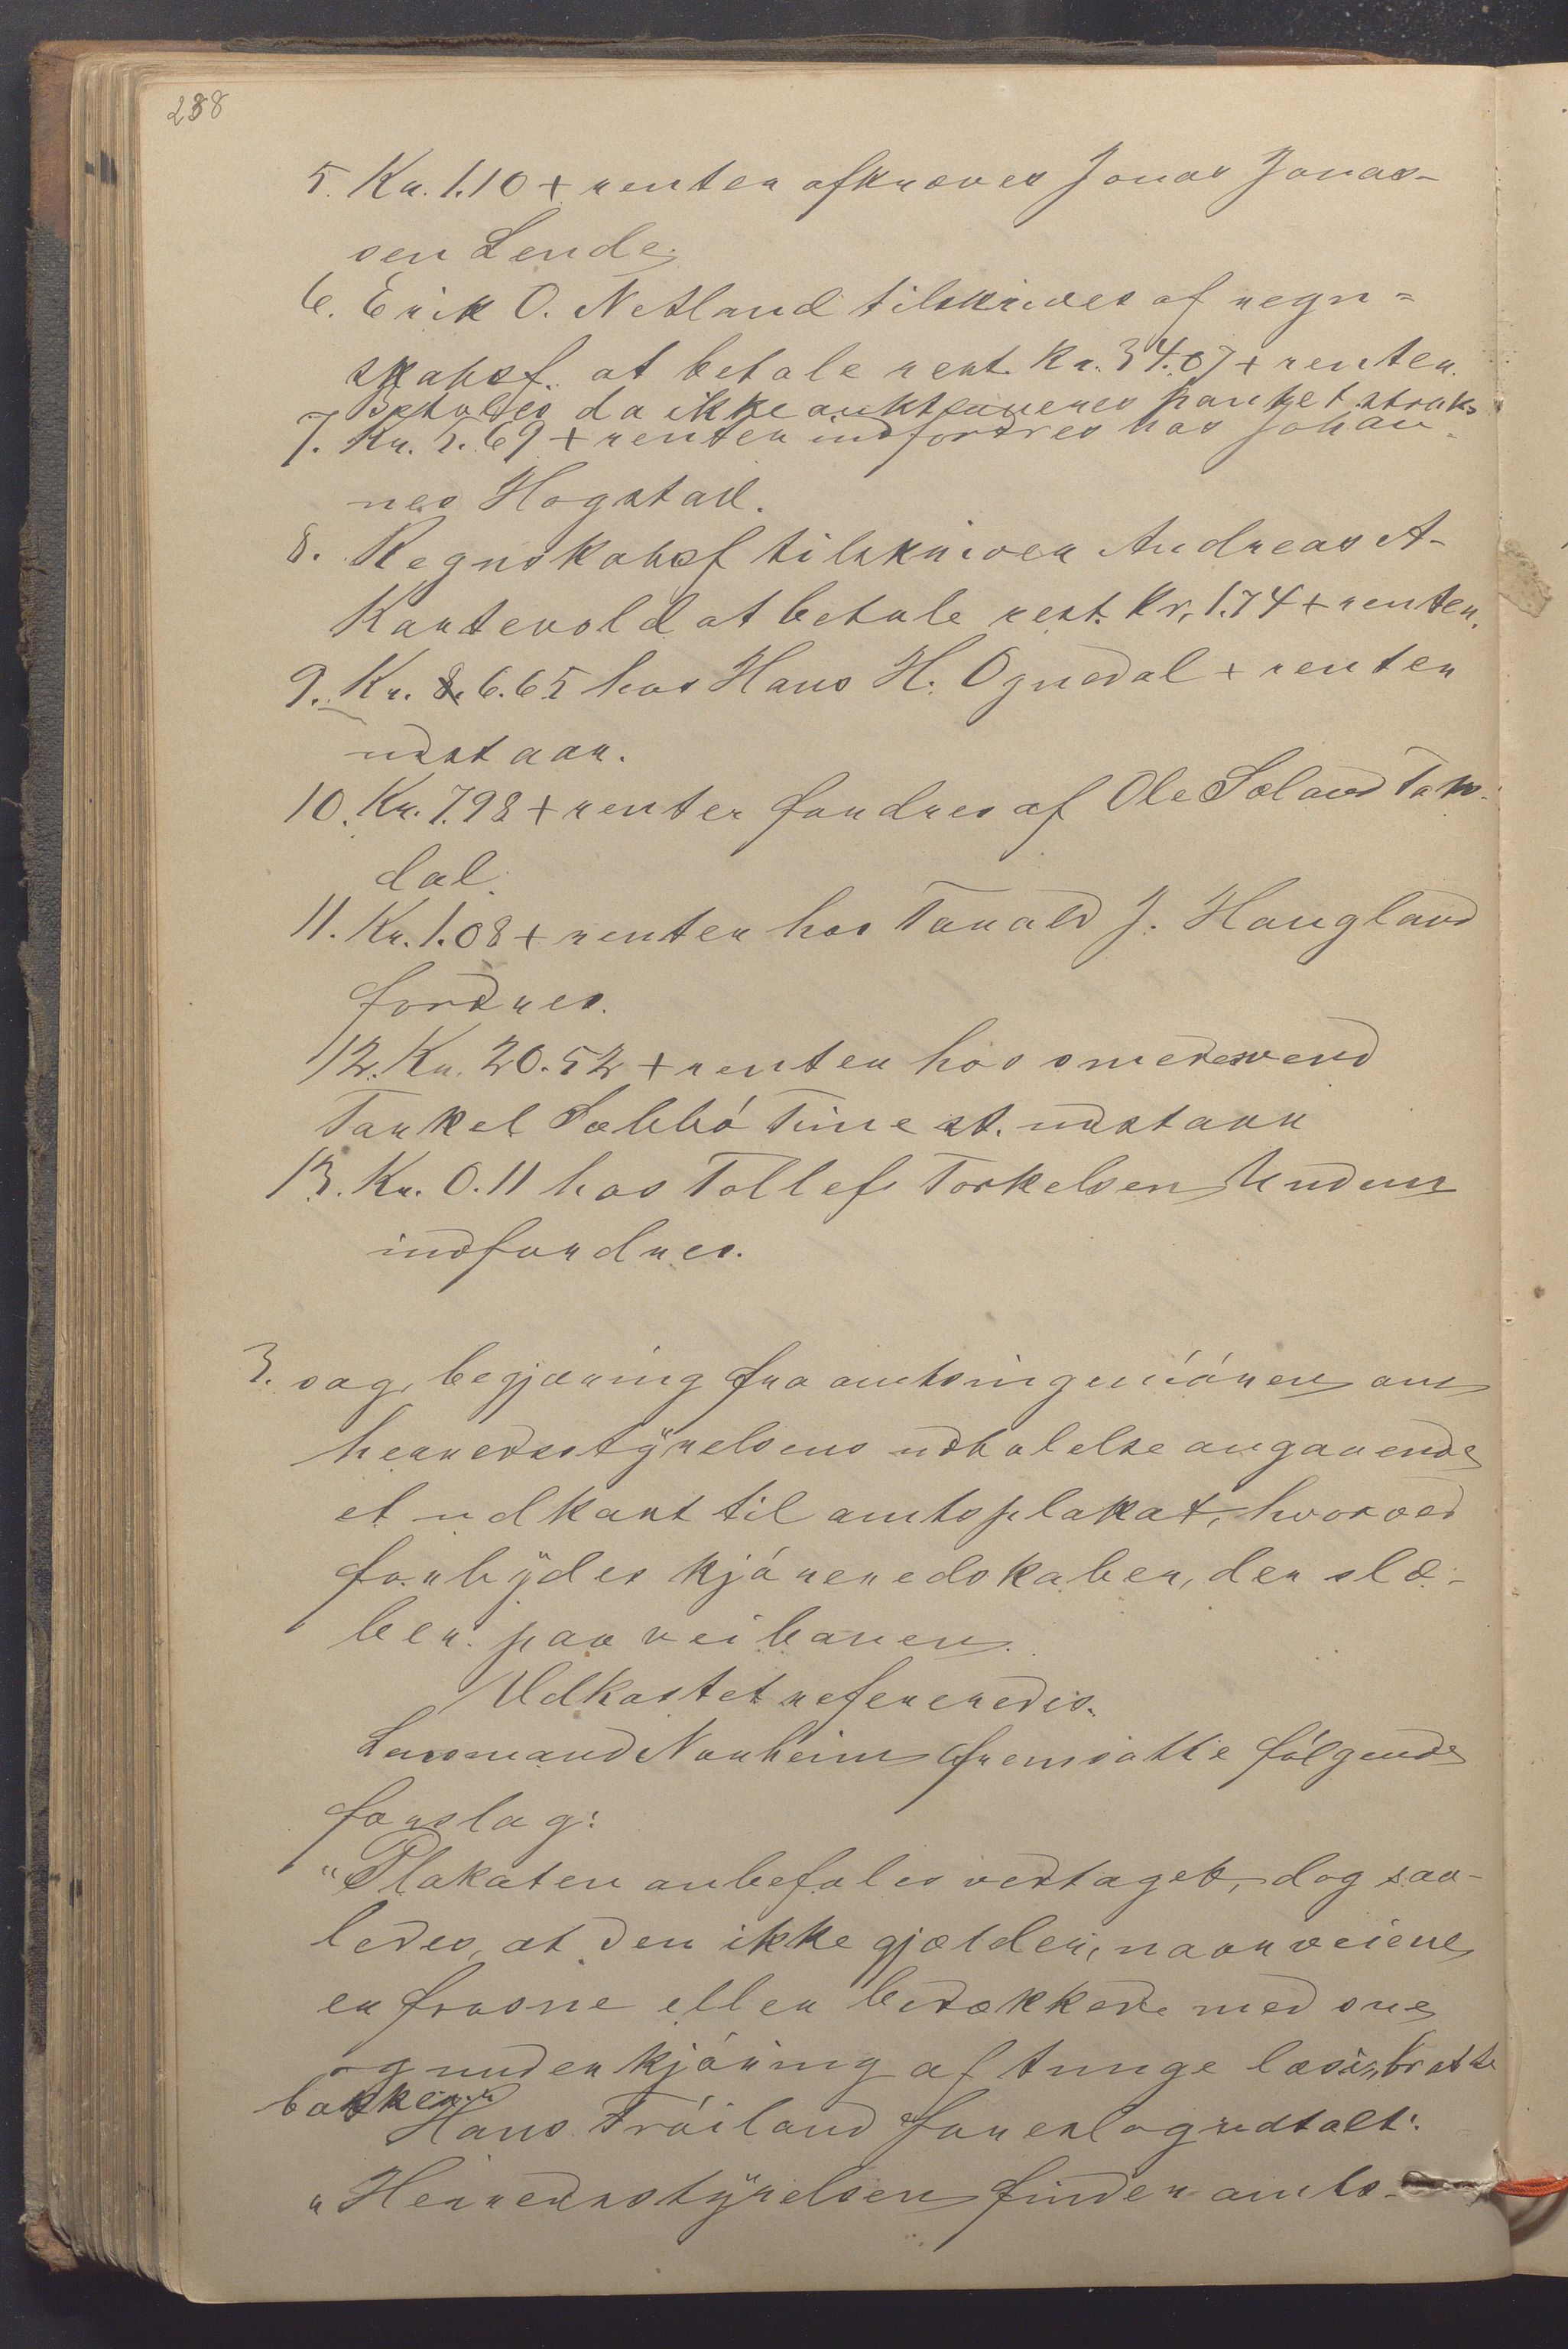 288
5. Kr. 1.10 + renter afkræves Jonas Jonas-
sen Lende.
6. Erik O. Netland tilskrives af regn=
skabsf. at betale rest. Kr. 34.07 + renter.
Betales da ikke auktioneres pantet straks
7. Kr. 5.69 + renter indfordres hos Johan-
nes Hogstad.
8. Regnskabsf tilskriver Andreas A-
Kartevold at betale rest. Kr. 1.74 + renter.
9. Kr. 6.65 hos Hans H. Ognedal + renter
udstaar.
10. Kr. 7.98 + renter fordres af Ole Sæland
dal.
11. Kr. 1.08 + renter hos Tarald J. Haugland
fordres.
12. Kr. 20.52 + renter hos smedesvend
Torkel Sælbø Time st. udstaar
13. Kr. 0.11 hos Tollef Torkelsen Undem
indfordres.
3. sag, begjæring fra amtsingeniøren om
herredsstyrelsens udtalelse angaaende
et udkast til amtsplakat, hvorved
forbydes kjøreredskaber, der slæ-
ber paa veibanen.
Udkastet refereredes.
Lensmand Norheim fremsatte følgende
forslag:
"Plakaten anbefales vedtaget, dog saa-
ledes, at den ikke gjælder, naar veiene
er frosne eller bedækkede med sne
og under kjøring af tunge læs i bratte
bakker."
Hans Trøiland foreslog udtalt:
"Herredsstyrelsen finder amts-